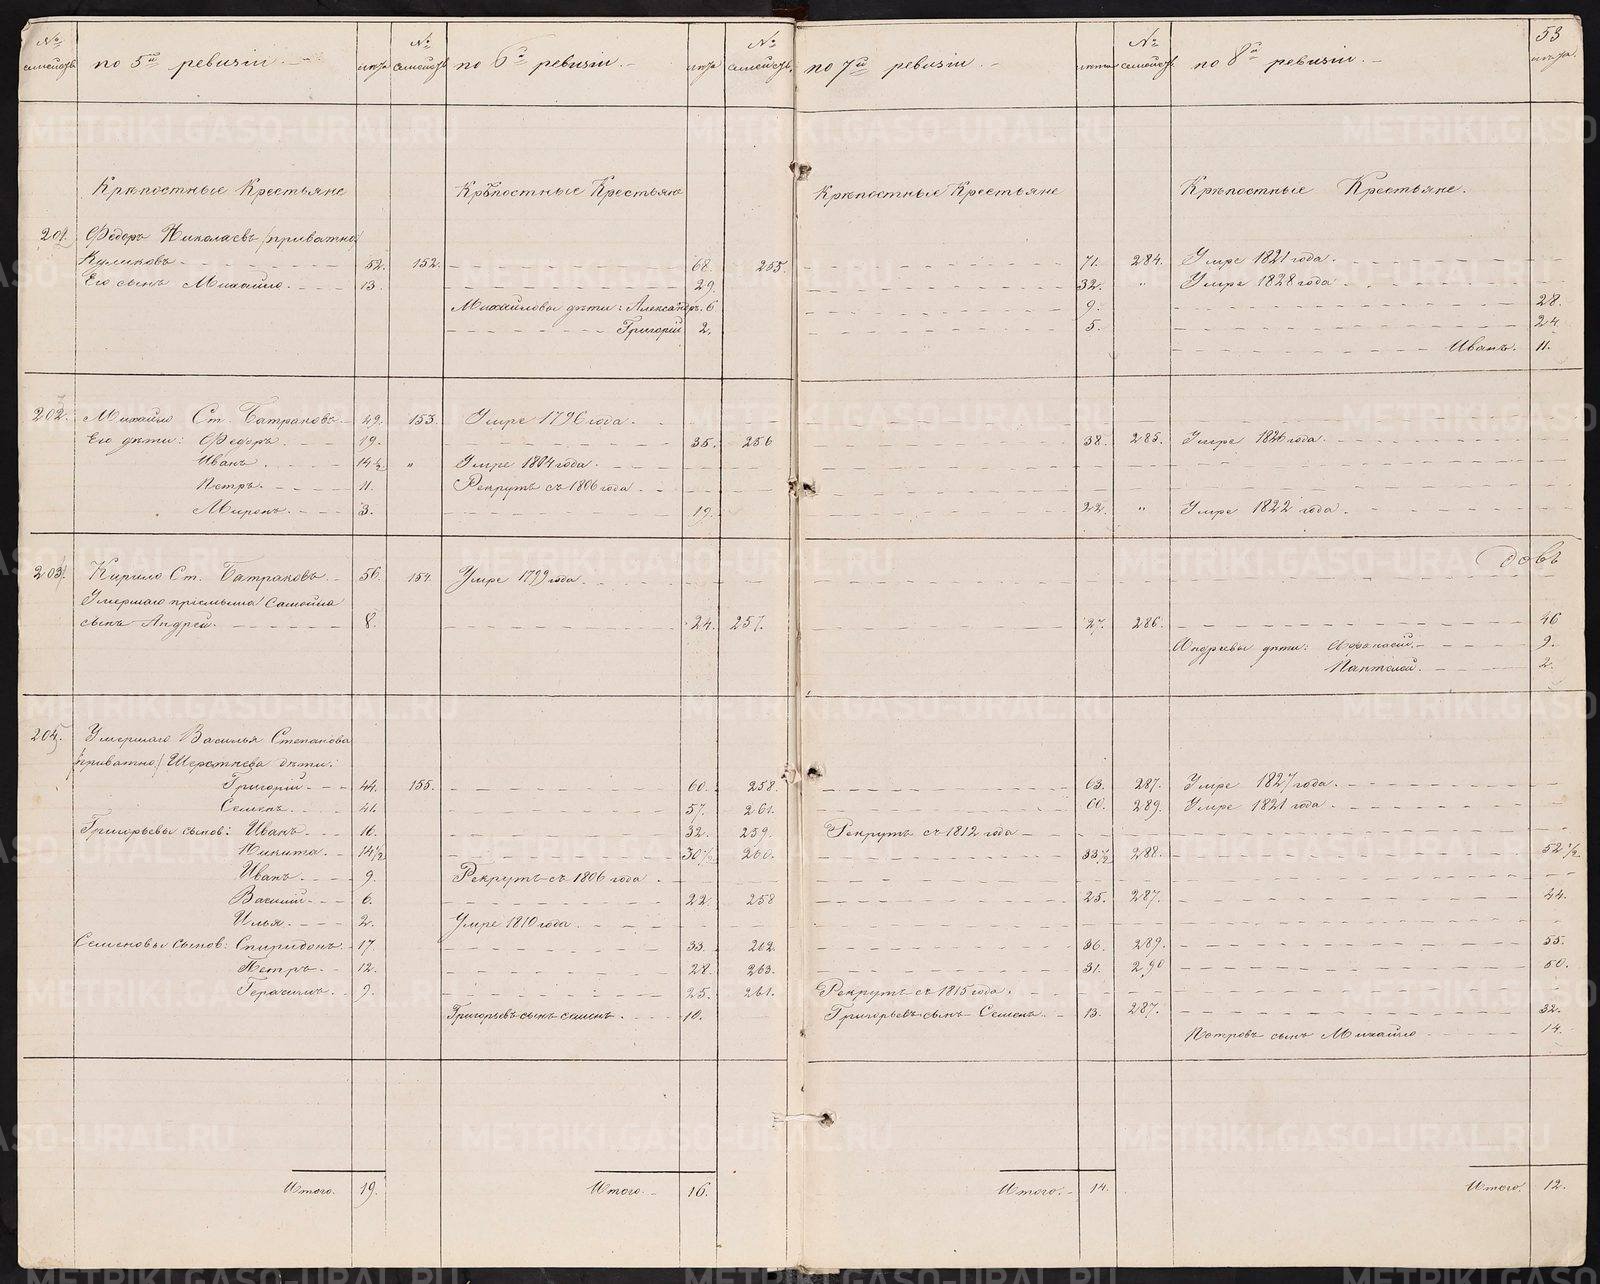 53
№ семействъ по 5й ревизіи. лѣта № семействъ по 6й ревизіи. лѣта № семействъ по 7й ревизіи. лѣта № семействъ по 8й ревизіи. лѣта
Крѣпостные Крестьяне Крѣпостные Крестьяне Крѣпостные Крестьяне Крѣпостные Крестьяне.
201. Федоръ Николаевъ /приватно/
Куликовъ 52. 152. 68. 255. 71. 284. Умре 1821 года.
Его сынъ Михайло. 13. 29. 32. " Умре 1828 года
Михайловы дѣти: Александръ. 6 9. 28.
Григорій 2. 5. 24.
Иванъ. 11.
202. Михайло Ст. Батраковъ 49. 153. Умре 1796 года.
Его дѣти: Федоръ. 19. 35. 256 38. 285. Умре 1826 года.
Иванъ. 14½ " Умре 1804 года.
Петръ. 11. Рекрутъ съ 1806 года
Миронъ. 3. 19. 22. " Умре 1822 года.
довъ
203. Кирило Ст. Батраковъ 56. 154. Умре 1799 года.
Умершаго пріемыша Самойла
сынъ Андрей. 8. 24. 257. 27. 286. 46
Андреевы дѣти: Афонасей. 9.
Пантелей. 2.
204. Умершаго Василья Степанова
/приватно/ Шерстнева дѣти:
Григорій 44. 155. 60. 258. 63. 287. Умре 1827 года.
Семенъ. 41. 57. 261. 60. 289. Умре 1821 года.
Григорьевы сынов: Иванъ. 16. 32. 259. Рекрутъ съ 1812 года
Никита. 14½ 30½ 260. 33½ 288. 52½
Иванъ. 9. Рекрутъ съ 1806 года.
Василій. 6. 22. 258 25. 287. 44.
Илья. 2. Умре 1810 года.
Семеновы сынов: Спиридонъ. 17. 33. 262. 36. 289. 55.
Петръ. 12. 28. 263. 31. 290 50.
Герасимъ. 9. 25. 261. Рекрутъ съ 1815 года.
Григорьевъ сынъ Семенъ. 10. Григорьевъ сынъ Семенъ. 13. 287. 32.
Петровъ сынъ Михайло 14.
Итого. 19. Итого. 16. Итого. 14. Итого. 12.
METRIKI.GASO-URAL.RU